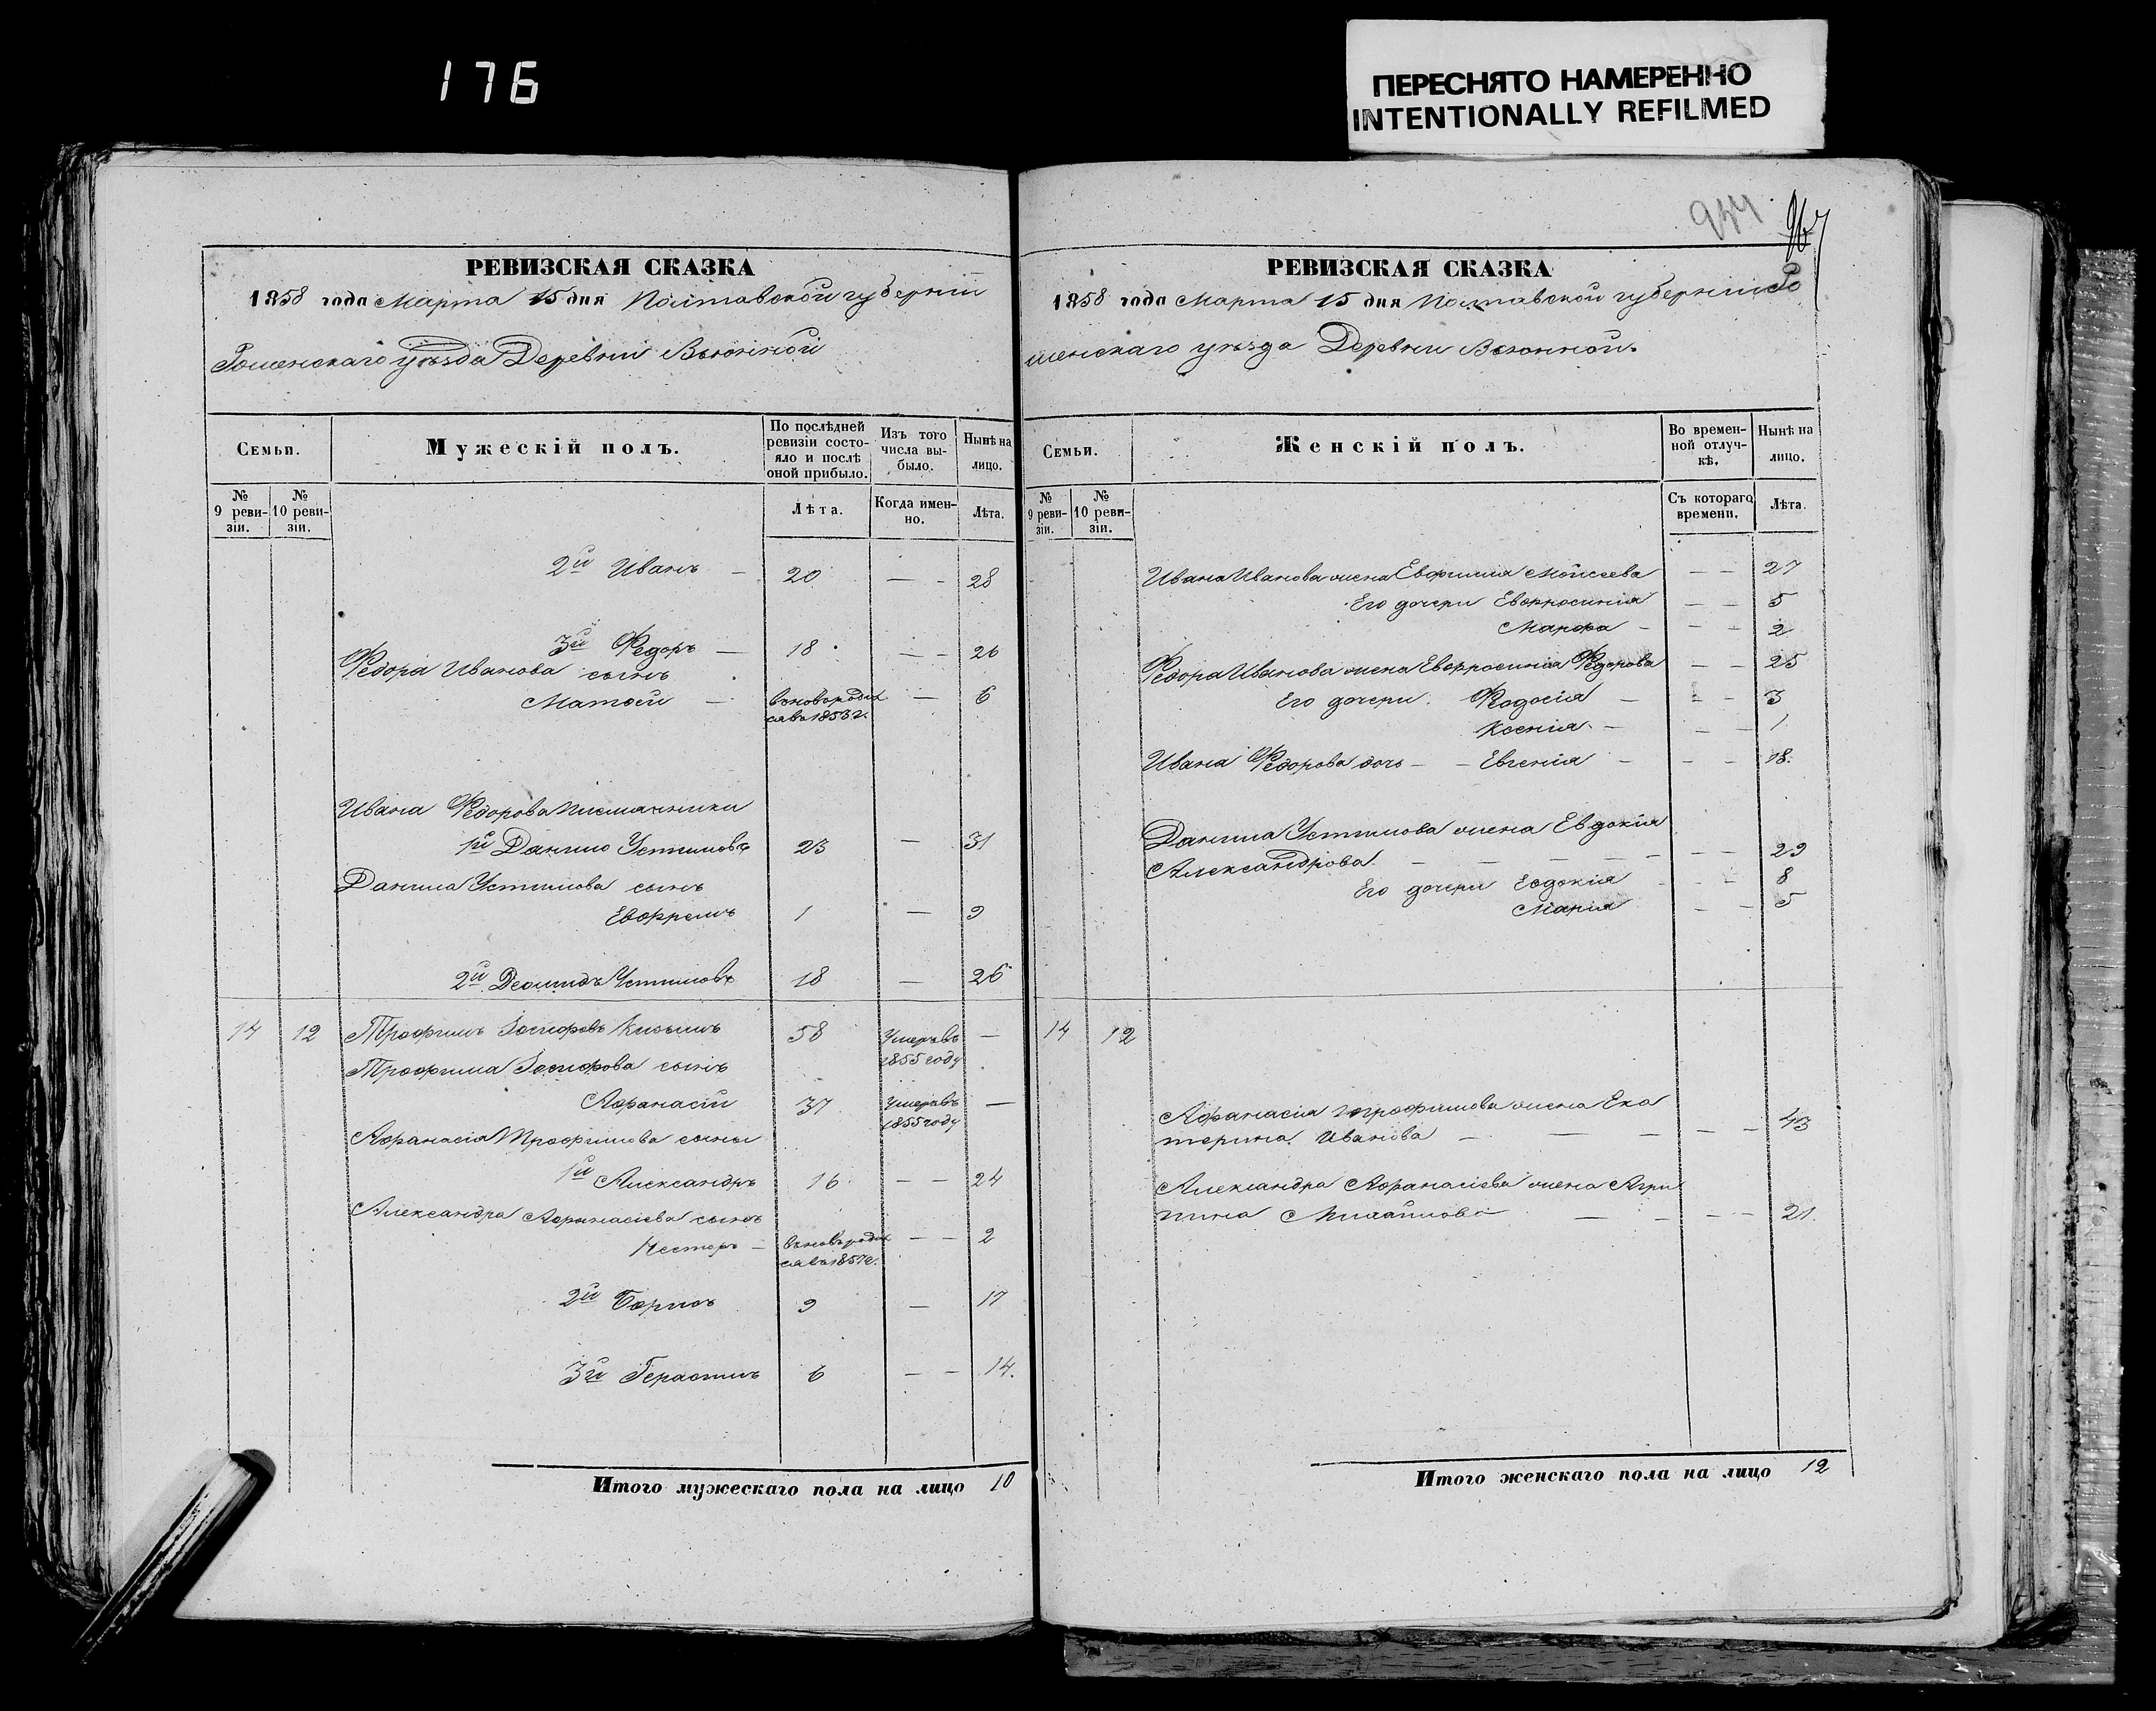 176
ПЕРЕСНЯТО НАМЕРЕННО
INTENTIONALLY REFILMED
934
РЕВИЗСКАЯ СКАЗКА
1858 года Марта 15 дня Полтавской губерніи
Роменскаго уѣзда Деревни Вьюнной
Семьи.
Мужескій полъ.
По послѣдней ревизіи состояло и послѣ оной прибыло.
Изъ того числа выбыло.
Нынѣ на лицо.
№ 9 ревизіи.
№ 10 ревизіи.
Лѣта.
Когда именно.
Лѣта.
2й Иванъ — 20 — - 28
3й Федоръ — 18 — - 26
Федора Иванова сынъ
Матвей — вновь родил — 6
ся въ 1853 г.
Ивана Федорова племянники
1й Данило Устимовъ 23 — 31
Данила Устимова сынъ
Евфремъ 1 — 9
2й Деомидъ Устимовъ 18 — 26
14 12 Трофимъ Іосифовъ 58 Умеръ въ —
1855 году
Трофима Іосифова сынъ
Афанасій 37 Умеръ въ —
1855 году
Афанасія Трофимова сыны
1й Александръ 16 — — 24
Александра Афанасіева сынъ
Несторъ — вновь родил — - 2
ся въ 1857 г.
2й Борисъ 9 — 17
3й Герасимъ 6 — - 14.
Итого мужескаго пола на лицо 10
РЕВИЗСКАЯ СКАЗКА
1858 года Марта 15 дня Полтавской губерніи Ро
менскаго уѣзда Деревни Вьюнной.
Семьи.
Женскій полъ.
Во временной отлучкѣ.
Нынѣ на лицо.
№ 9 ревизіи.
№ 10 ревизіи.
Съ котораго времени.
Лѣта.
Ивана Иванова жена Евфимія Моисеева — - 27
Его дочери Евфросинія — - 5
Марфа - — - 2
Федора Иванова жена Евфросинія Федорова — - 25
Его дочери. Феодосія — - - 3
Ксенія. — — - 1
Ивана Федорова дочь - - Евгенія — - - 18.
Данила Устимова жена Евдокія
Александрова. - — — — - — - 29
Его дочери Евдокія - - 8
Марія — - 5
14 12
Афанасія Трофимова жена Ека
терина Иванова — — - — - 43
Александра Афанасіева жена Агри
пина Михайлова — - — - 21.
Итого женскаго пола на лицо 12